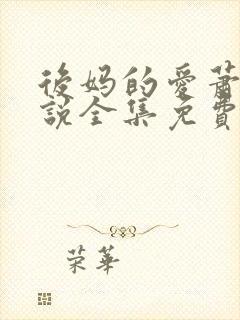 後妈的愛萧
說全集免費
荣華